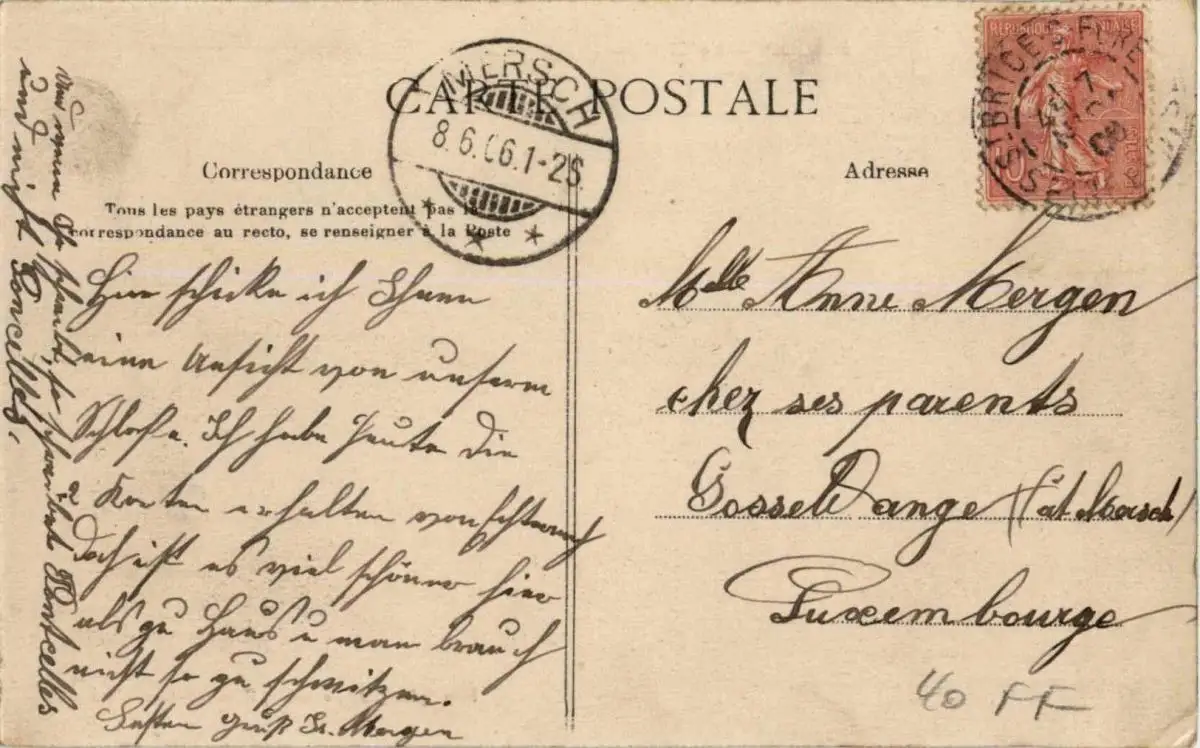 CARTE POSTALE
Correspondance
Tous les pays étrangers n'acceptent pas la
correspondance au recto, se renseigner à la Poste
Hier schicke ich Ihnen
eine Ansicht von unserm
Schloße. Ich habe heute die
2 Karten erhalten von
Doch ist es viel schöner hier
als zu Haus u man brauch
nicht so zu schwitzen.
Besten Gruß Mergen
Wenn Sie schreibt, so schreibt Pontcelles
und nicht Poncelles.
MERSCH
8.6.06.1-2S
Adresse
REPUBLIQUE FRANÇAISE
ST BRICE S. FORET
Mlle Anne Mergen
chez ses parents
Gosseldange (at Mersch)
Luxembourge
40 FF